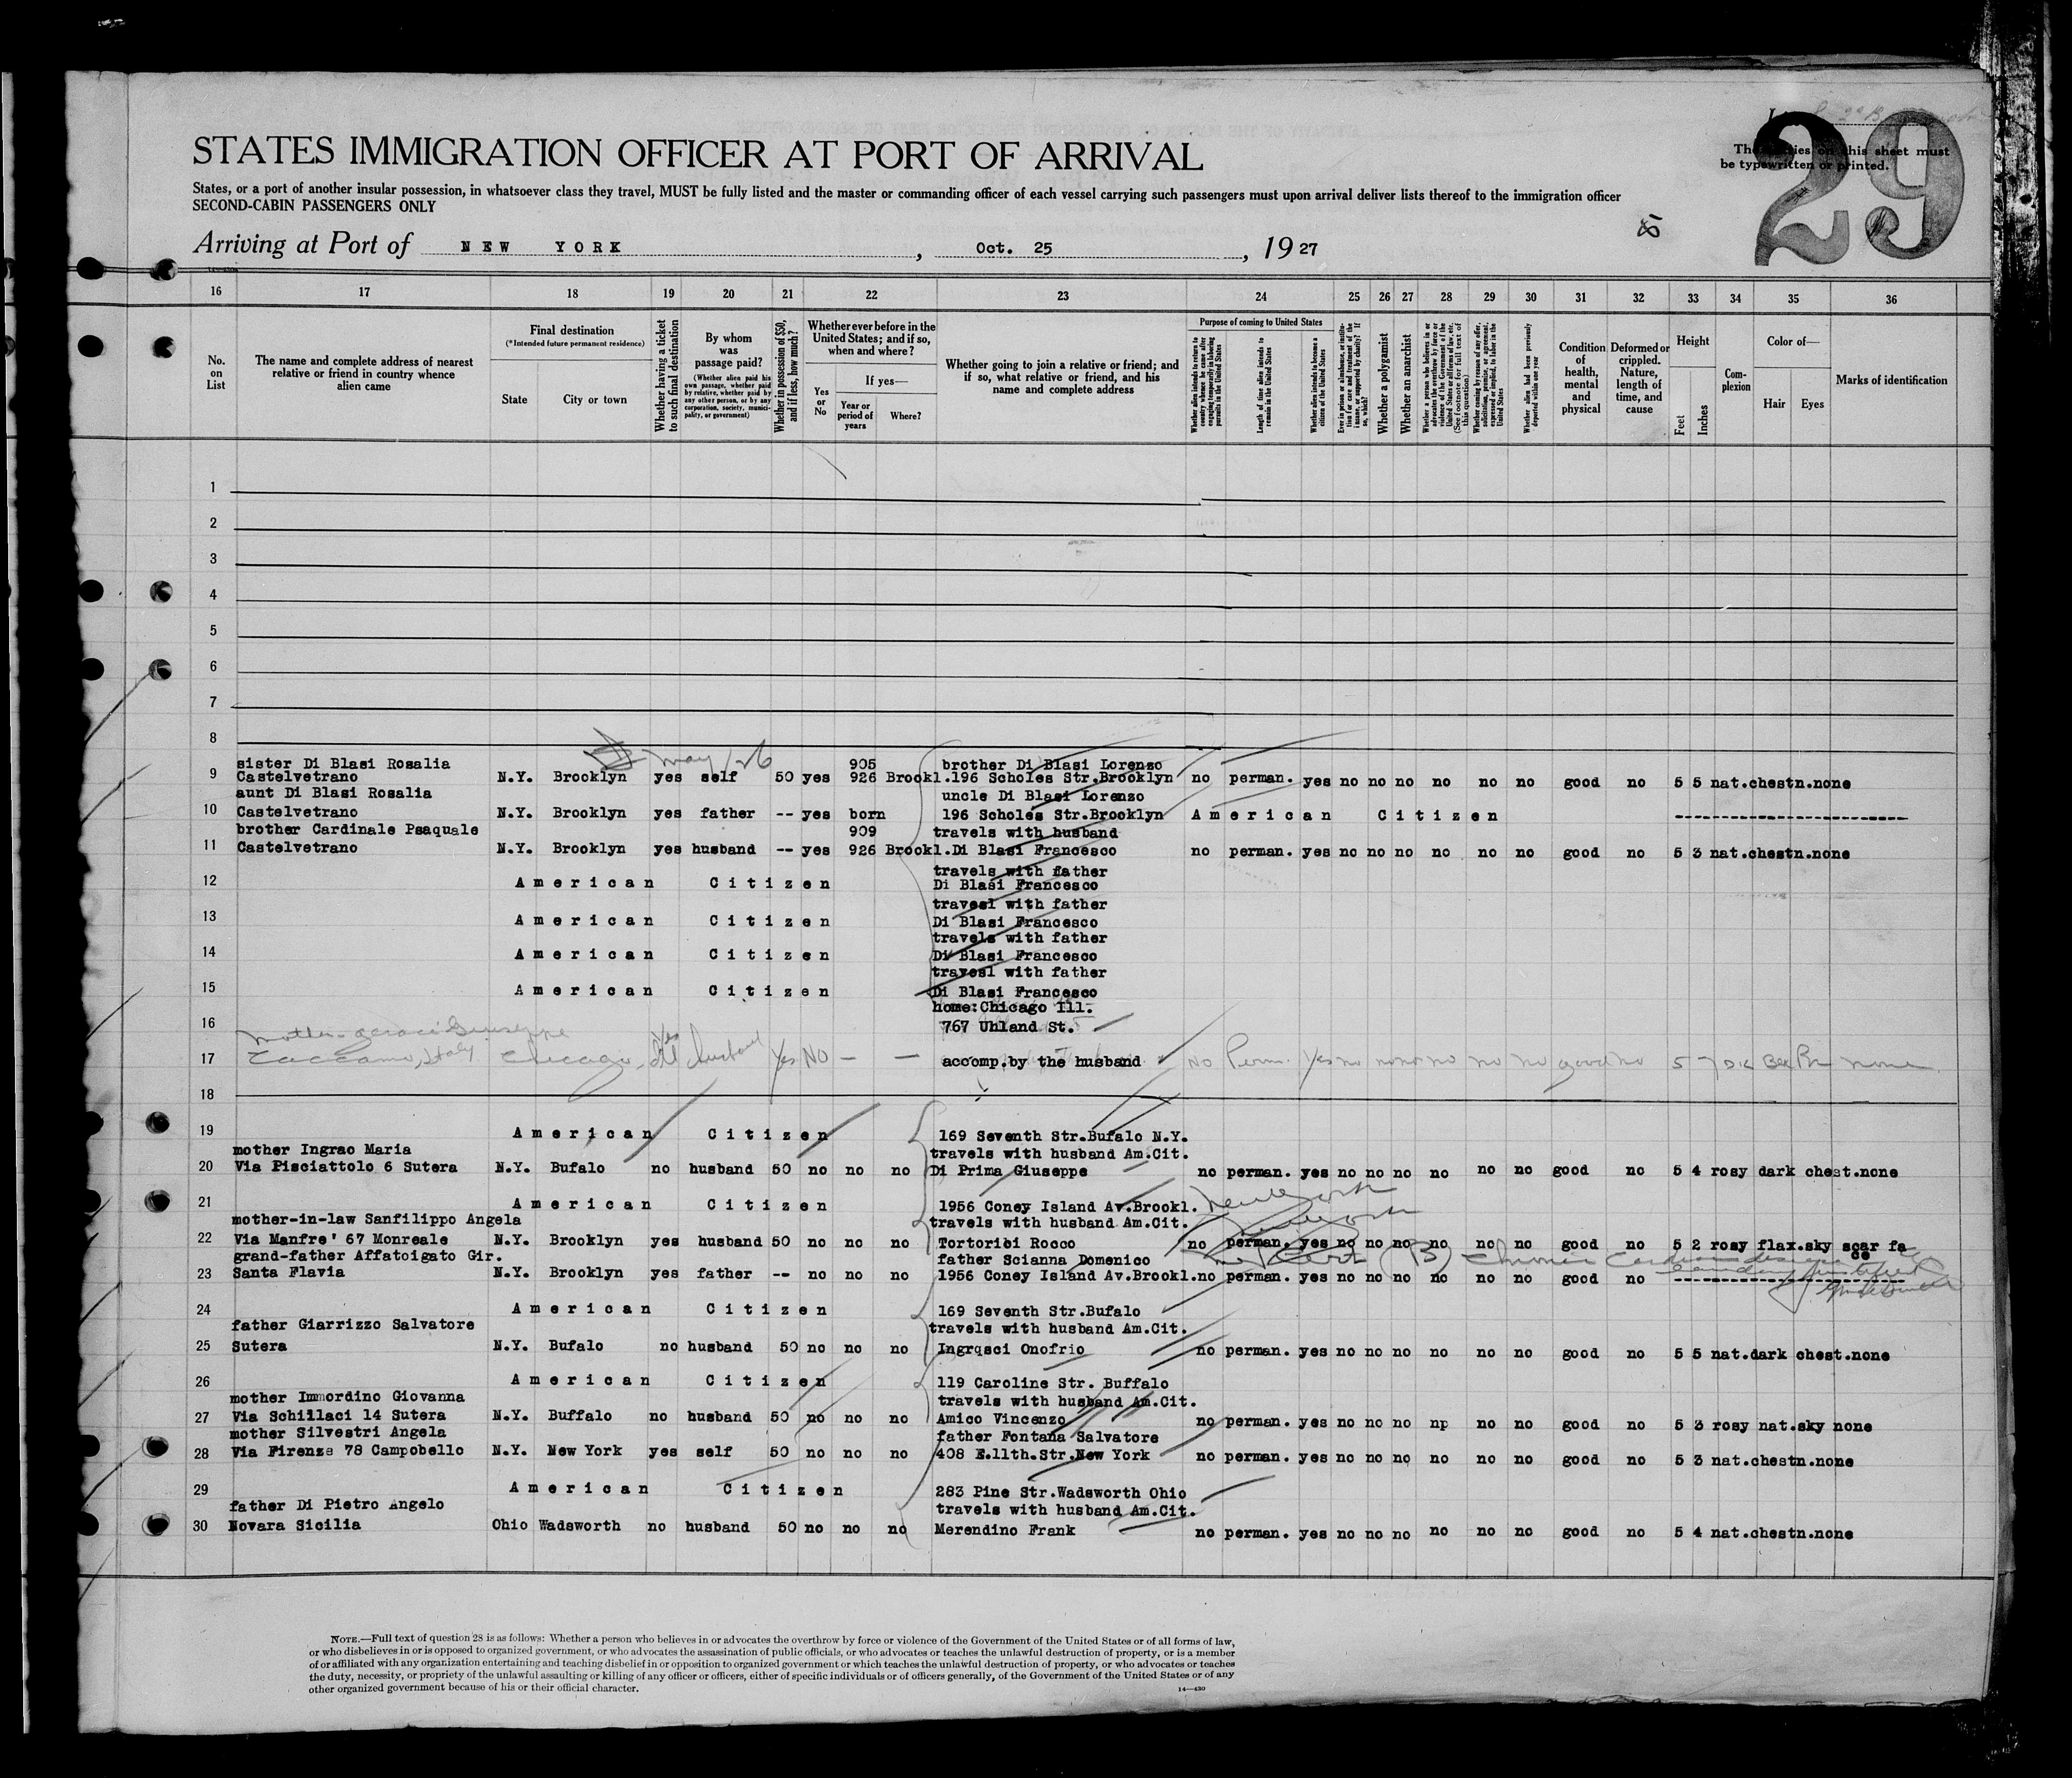 29
The entries on this sheet must
be typewritten or printed.
STATES IMMIGRATION OFFICER AT PORT OF ARRIVAL
States, or a port of another insular possession, in whatsoever class they travel, MUST be fully listed and the master or commanding officer of each vessel carrying such passengers must upon arrival deliver lists thereof to the immigration officer
SECOND-CABIN PASSENGERS ONLY
Arriving at Port of NEW YORK, Oct. 25, 1927
16 17 18 19 20 21 22 23 24 25 26 27 28 29 30 31 32 33 34 35 36
No. on List
The name and complete address of nearest relative or friend in country whence alien came
Final destination
(*Intended future permanent residence)
State
City or town
Whether having a ticket to such final destination
By whom was passage paid?
(Whether alien paid his own passage, whether paid by relative, whether paid by any other person, or by any corporation, society, municipality, or government)
Whether in possession of $50, and if less, how much?
Whether ever before in the United States; and if so, when and where?
Yes or No
If yes—
Year or period of years
Where?
Whether going to join a relative or friend; and if so, what relative or friend, and his name and complete address
Purpose of coming to United States
Whether alien intends to return to country whence he came after engaging temporarily in laboring pursuits in the United States
Length of time alien intends to remain in the United States
Whether alien intends to become a citizen of the United States
Ever in prison or almshouse, or institution for care and treatment of the insane, or supported by charity? If so, which?
Whether a polygamist
Whether an anarchist
Whether a person who believes in or advocates the overthrow by force or violence of the Government of the United States or all forms of law, etc. (See footnote for full text of this question)
Whether coming by reason of any offer, solicitation, promise, or agreement, expressed or implied, to labor in the United States
Whether alien had been previously deported within one year
Condition of health, mental and physical
Deformed or crippled. Nature, length of time, and cause
Height
Feet
Inches
Complexion
Color of—
Hair
Eyes
Marks of identification
1
2
3
4
5
6
7
8
May / 26
sister Di Blasi Rosalia 905 brother Di Blasi Lorenzo
9 Castelvetrano N.Y. Brooklyn yes self 50 yes 926 Brookl. 196 Scholes Str.Brooklyn no perman. yes no no no no no no good no 5 5 nat.chestn.none
aunt Di Blasi Rosalia uncle Di Blasi Lorenzo
10 Castelvetrano N.Y. Brooklyn yes father -- yes born 196 Scholes Str.Brooklyn American Citizen
brother Cardinale Psaquale 909 travels with husband
11 Castelvetrano N.Y. Brooklyn yes husband -- yes 926 Brookl. Di Blasi Francesco no perman. yes no no no no no no good no 5 3 nat.chestn.none
travels with father
12 American Citizen Di Blasi Francesco
travesl with father
13 American Citizen Di Blasi Francesco
travels with father
14 American Citizen Di Blasi Francesco
travesl with father
15 American Citizen Di Blasi Francesco
home:Chicago Ill.
16 767 Uhland St.
mother Geraci Giuseppe
17 Caccamo, Italy Chicago, Ill Yes husband Yes No — — accomp.by the husband No Perm. Yes no no no no no no good no 5 7 Dk Blk Br none
18
19 American Citizen 169 Seventh Str.Bufalo N.Y.
mother Ingrao Maria travels with husband Am.Cit.
20 Via Pisciattolo 6 Sutera N.Y. Bufalo no husband 50 no no no Di Prima Giuseppe no perman. yes no no no no no no good no 5 4 rosy dark chest.none
21 American Citizen 1956 Coney Island Av.Brookl.
mother-in-law Sanfilippo Angela travels with husband Am.Cit.
22 Via Manfre' 67 Monreale N.Y. Brooklyn yes husband 50 no no no Tortorici Rocco no perman. yes no no no no no no good no 5 2 rosy flax.sky scar face
grand-father Affatoigato Gir. father Scianna Domenico Cert (B) Chronic
23 Santa Flavia N.Y. Brooklyn yes father -- no no no 1956 Coney Island Av.Brookl. no perman. yes no no no no no no good no
24 American Citizen 169 Seventh Str.Bufalo
father Giarrizzo Salvatore travels with husband Am.Cit.
25 Sutera N.Y. Bufalo no husband 50 no no no Ingrasci Onofrio no perman. yes no no no no no no good no 5 5 nat.dark chest.none
26 American Citizen 119 Caroline Str. Buffalo
mother Immordino Giovanna travels with husband Am.Cit.
27 Via Schillaci 14 Sutera N.Y. Buffalo no husband 50 no no no Amico Vincenzo no perman. yes no no no np no no good no 5 3 rosy nat.sky none
mother Silvestri Angela father Fontana Salvatore
28 Via Firenze 78 Campobello N.Y. New York yes self 50 no no no 408 E.11th.Str.New York no perman. yes no no no no no no good no 5 3 nat.chestn.none
29 American Citizen 283 Pine Str.Wadsworth Ohio
father Di Pietro Angelo travels with husband Am.Cit.
30 Novara Sicilia Ohio Wadsworth no husband 50 no no no Merendino Frank no perman. yes no no no no no no good no 5 4 nat.chestn.none
NOTE.—Full text of question 28 is as follows: Whether a person who believes in or advocates the overthrow by force or violence of the Government of the United States or of all forms of law,
or who disbelieves in or is opposed to organized government, or who advocates the assassination of public officials, or who advocates or teaches the unlawful destruction of property, or is a member
of or affiliated with any organization entertaining and teaching disbelief in or opposition to organized government or which teaches the unlawful destruction of property, or who advocates or teaches
the duty, necessity, or propriety of the unlawful assaulting or killing of any officer or officers, either of specific individuals or of officers generally, of the Government of the United States or of any
other organized government because of his or their official character.
14—430